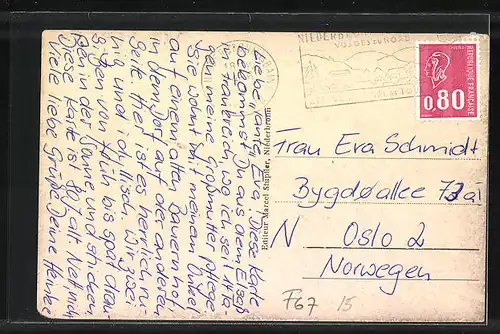 Liebe Tante Eva! Diese Karte
bekommst Du aus dem Elsaß
in Frankreich, wo ich seit 14 Ta-
gen meine Großmutter pflege
Sie wohnt mit meinem Onkel
auf einem alten Bauernhof
in dem Dorf auf der anderen
Seite. Hier ist es herrlich ru-
hig und idyllisch. Wir zwei
sitzen von früh bis spät drau-
ßen in der Sonne und stricken
Diese Karte ist 80 alt Nett nich
Viele liebe Grüße Deine Henrike
Editeur Marcel Stupfler, Niederbronn
NIEDERBRONN
VOSGES du NORD
REPUBLIQUE FRANCAISE
0,80
Frau Eva Schmidt
Bygdøallee
N Oslo 2
Norwegen
F67 15